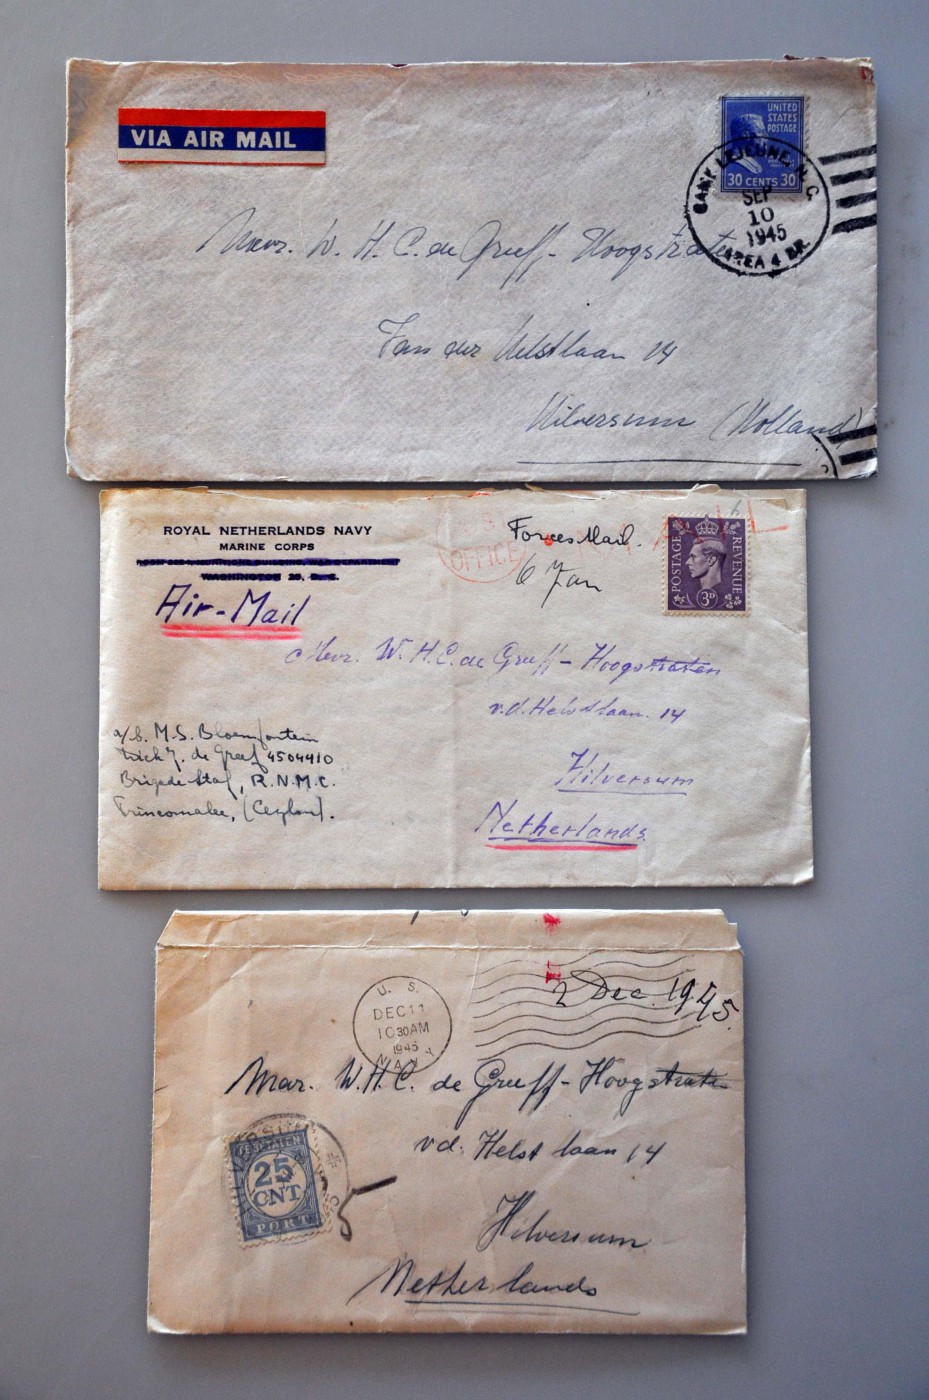 VIA AIR MAIL
UNITED
STATES
POSTAGE
30 CENTS 30
CAMP LEJEUNE, N.C.
SEP
10
1945
AREA 4 BR.
Mevr. W. H. C. de Greeff-Hoogstraten
Van der Helstlaan 14
Hilversum (Holland)
ROYAL NETHERLANDS NAVY
MARINE CORPS
WASHINGTON 25, D.C.
Air-Mail
OFFICE
Forces Mail.
6 Jan
POSTAGE
REVENUE
3D
Mevr. W. H. C. de Greeff-Hoogstraten
v.d. Helstlaan. 14
Hilversum
Netherlands
a/b. M.S. Bloemfontein
de Greef 4504410
Brigade Staf, R.N.M.C.
Trincomalee, (Ceylon).
2 Dec. 1945.
U. S.
DEC 11
10 30 AM
1945
NAVY
Mevr. W.H.C. de Greeff-Hoogstraten
v.d. Helstlaan 14
Hilversum
Netherlands
HILVERSUM
TE BETALEN
25
CNT
PORT